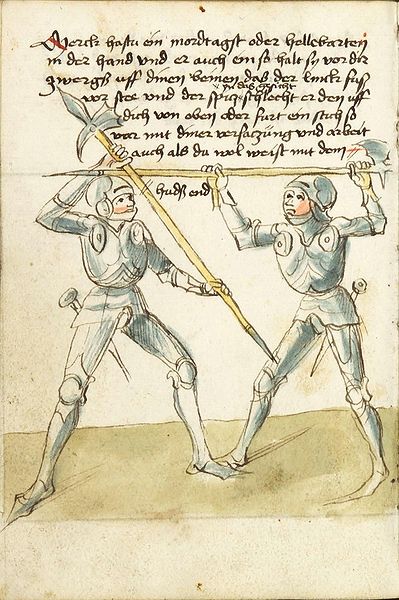 Merck hastu ein mordtagst oder hellebarten
in der hand und er auch ein so halt sy vor dir
zwergß uff dinen beinen das der linck fůß
in das gesicht
vor stee und der spiz schlecht er den uff
dich von oben oder furt ein stich so
var mit diner versatzung und arbeit
auch als du wol weist mit dem
hudß end